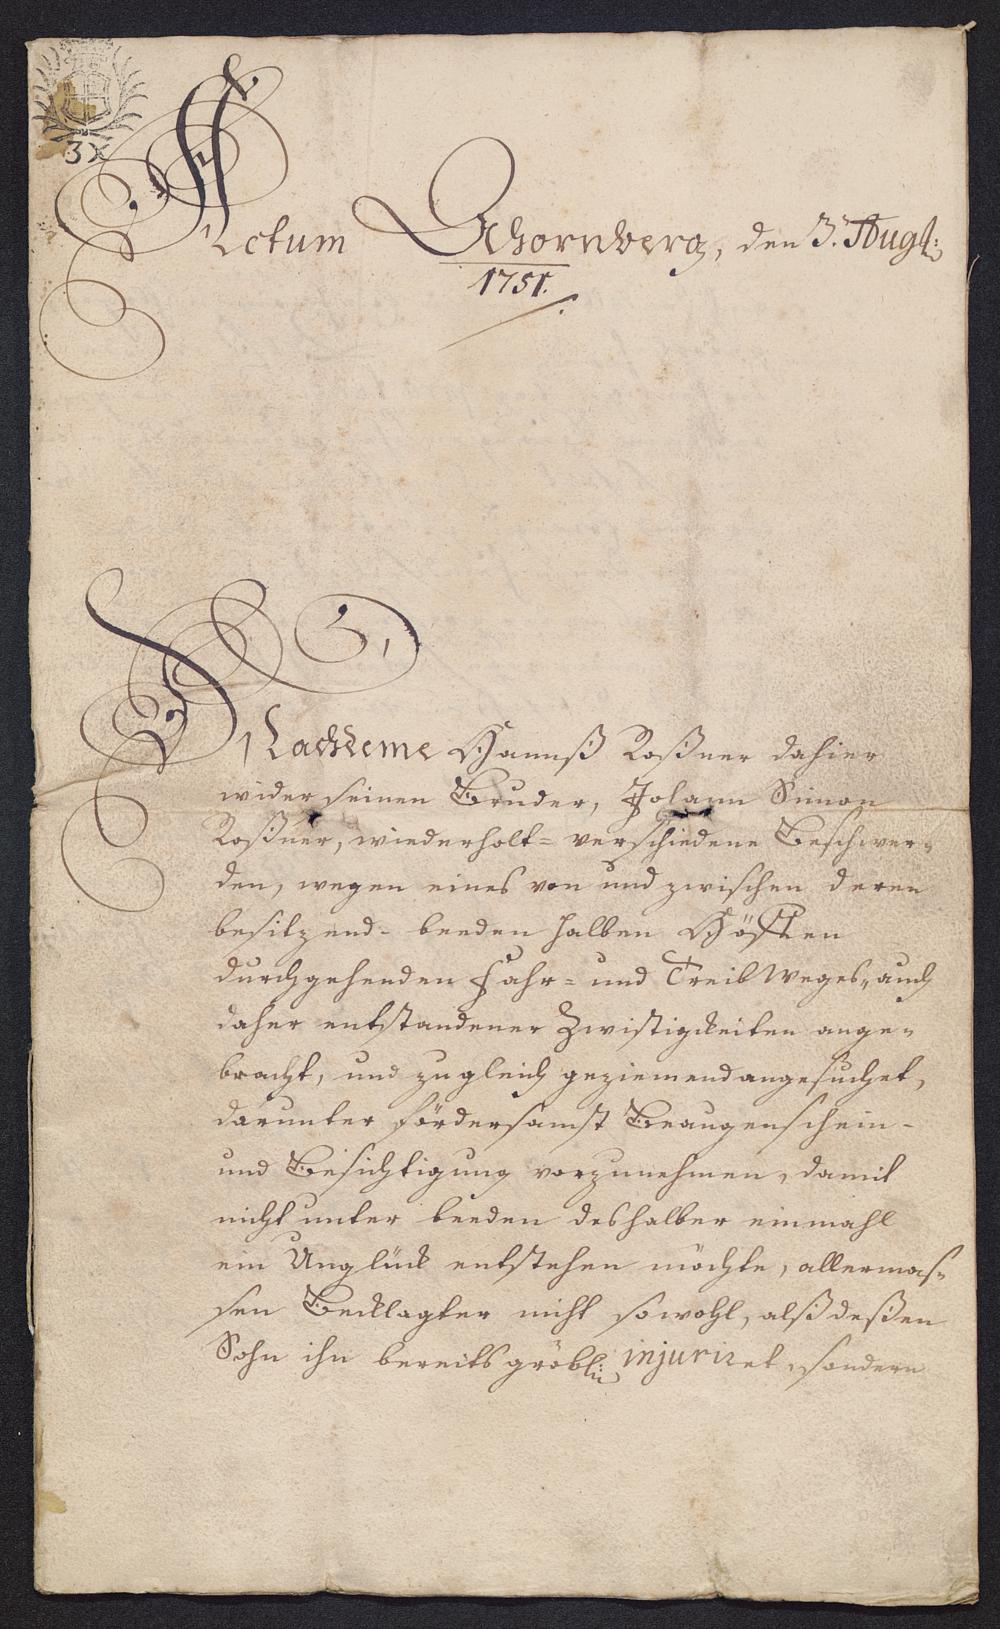 3x
Actum Schornberg, den 3. Augt:
1751.
Nachdeme Hannß Roßner dahier
wider seinen Bruder, Johann Simon
Roßner, wiederholt= verschiedene Beschwer=
den, wegen eines von und zwischen deren
besitzend- beeden halben Höfften
durchgehenden Fahr= und Treib Weges, auch
daher entstandener Zwistigkeiten ange=
bracht, und zugleich geziemend angesuchet,
darunter fördersamst Beaugenschein-
und Besichtigung vorzunehmen, damit
nicht unter beeden deshalber einmahl
ein Unglück entstehen möchte, allermas=
sen Becklagter nicht sowohl, alß deßen
Sohn ihn bereits gröbli: injuriret, sondern